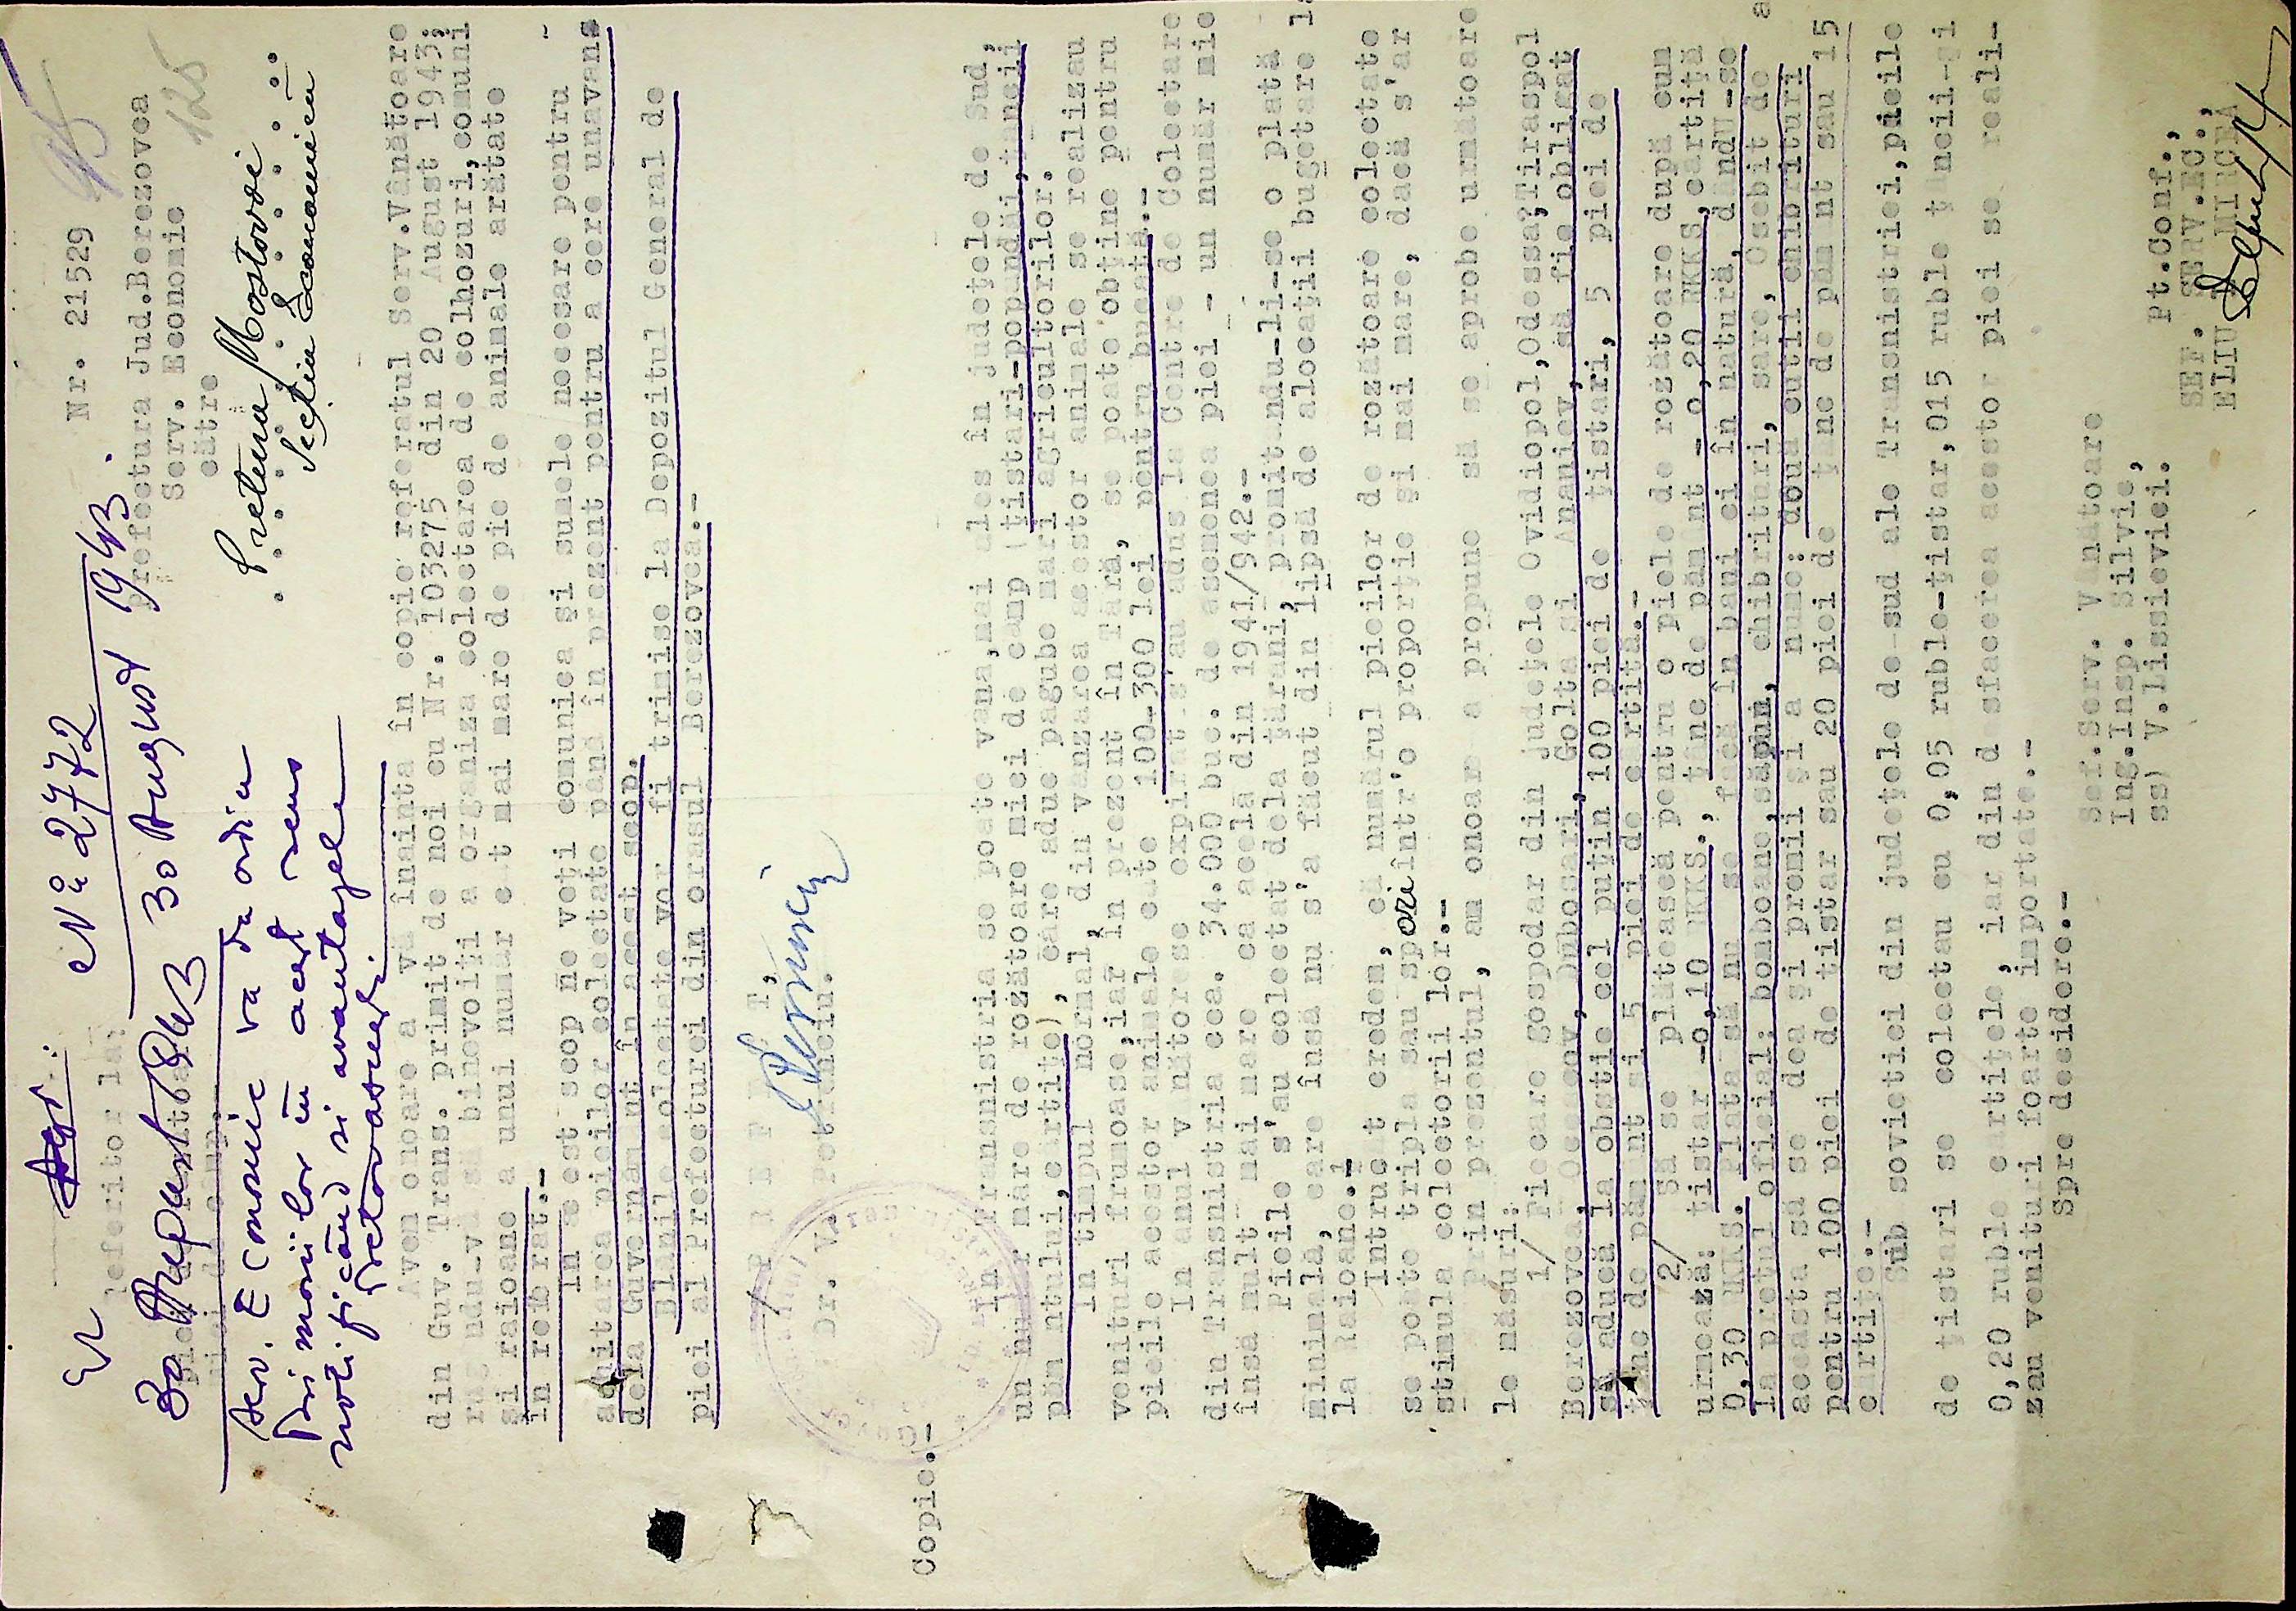 Nr. 21529
125
№ 2772
30 August 1943.
Prefectura Jud.Berezovca
Serv. Economic
către
Pretura Mostovoi
Secția Economică
Referitor la:
Serv. Economic va da ordin
Primăriilor în acest sens
notificând și avantajele
Avem onoare a vă înainta în copie referatul Serv.Vânătoare
din Guv. Trans. primit de noi cu Nr. 103275 din 20 August 1943;
rugându-vă să binevoiți a organiza colectarea de colhozuri,comuni
și raioane a unui număr cât mai mare de pie de animale arătate
în referat.-
În acest scop ne veți comunica și sumele necesare pentru
achitarea pieilor colectate până în prezent pentru a cere unavans
dela Guvernământ în acest scop.
Blănile colectate vor fi trimise la Depozitul General de
piei al Prefecturei din orașul Berezovca.-
P R E F E C T,
Dr. V.
Copie.-
În Transnistria se poate vâna,mai ales în județele de Sud,
un număr mare de rozătoare mici de câmp (țistari-popândăi,țâncii
pământului,cârtițe), care aduc pagube mari agricultorilor.
În timpul normal, din vânzarea acestor animale se realizau
venituri frumoase,iar în prezent în Țară, se poate obține pentru
pieile acestor animale câte 100-300 lei pentru bucată.-
În anul vânătoresc expirat s'au adus la Centre de Colectare
din Transnistria cca. 34.000 buc. de asemenea piei - un număr mic
însă mult mai mare ca acela din 1941/942.-
Pieile s'au colectat dela țărani, promitându-li-se o plată
minimală, care însă nu s'a făcut din lipsă de alocații bugetare la
la Raioane.-
Întrucât credem, că numărul pieilor de rozătoare colectate
se poate tripla sau spori într'o proporție și mai mare, dacă s'ar
stimula colectorii lor.-
Prin prezentul, am onoare a propune să se aprobe următoare
le măsuri:
1/ Fiecare gospodar din județele Ovidiopol,Odessa,Tiraspol
Berezovca, Oceacov, Dubosari, Golta și Ananiev, să fie obligat
să aducă la obștie cel puțin 100 piei de țistari, 5 piei de
țânc de pământ și 5 piei de cârtiță.-
2/ Să se plătească pentru o piele de rozătoare după cum
urmează: țistar -0,10 RKKS., țânc de pământ - 0,20 RKKS,cârtiță
0,30 RKKS. Plata să nu se facă în bani ci în natură, dându-se
la prețul oficial: bomboane,săpun, chibrituri, sare, Osebit de
aceasta să se dea și premii și a nume: doua cutii chibrituri
pentru 100 piei de țistar sau 20 piei de țânc de pământ sau 15
cârtițe.-
Sub sovietici din județele de-sud ale Transnistriei,pieile
de țistari se colectau cu 0,05 ruble-țistar,015 ruble țâncii-și
0,20 ruble cârtițele, iar din desfacerea acestor piei se reali-
zau venituri foarte importate.-
Spre decidere.-
Șef.Serv. Vânătoare
Ing.Insp. Silvic,
ss) V.Lissievici.
Pt.Conf.,
ȘEF. SERV.EC.,